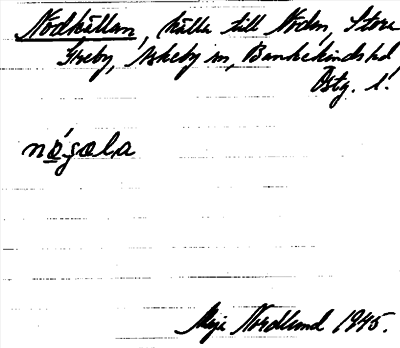 Nodkällan, källa till Noden, Stora
Greby, Askeby sn, Bankekinds hd
Östg. l.
Maja Nordlund 1945.